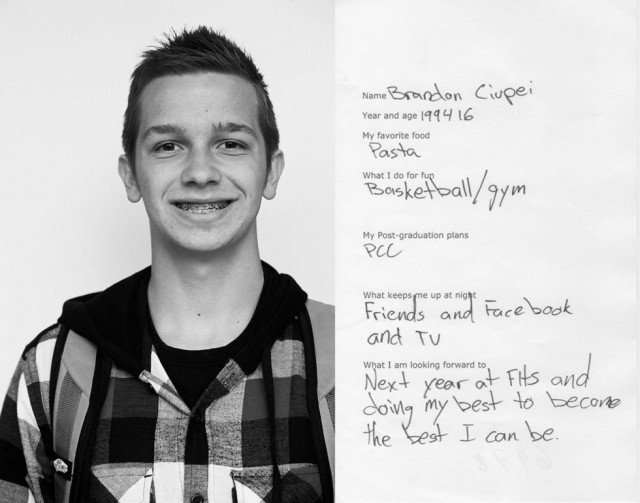 Name Brandon Ciupei
Year and age 1994 16
My favorite food
Pasta
What I do for fun
Basketball/gym
My Post-graduation plans
PCC
What keeps me up at night
Friends and Facebook
and TV
What I am looking forward to
Next year at FHS and
doing my best to become
the best I can be.